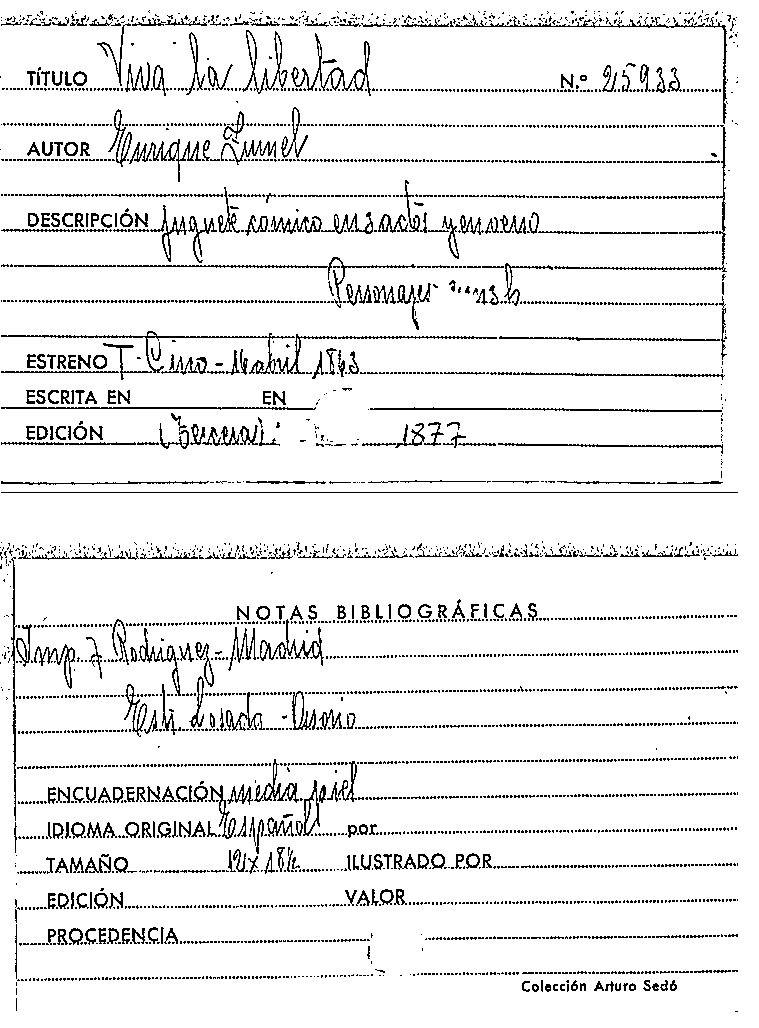 TÍTULO Viva la libertad N.º 25933
AUTOR Enrique Zumel
DESCRIPCIÓN Juguete cómico en 3 actos y en verso
Personajes
ESTRENO T. Circo - 16 abril 18
ESCRITA EN EN
EDICIÓN (Tercera) 1877
NOTAS BIBLIOGRÁFICAS
Imp. J Rodriguez - Madrid
Est. Losada - Osorio
ENCUADERNACIÓN media piel
IDIOMA ORIGINAL Español por
TAMAÑO 12 x 18½ ILUSTRADO POR
EDICIÓN VALOR
PROCEDENCIA
Colección Arturo Sedó